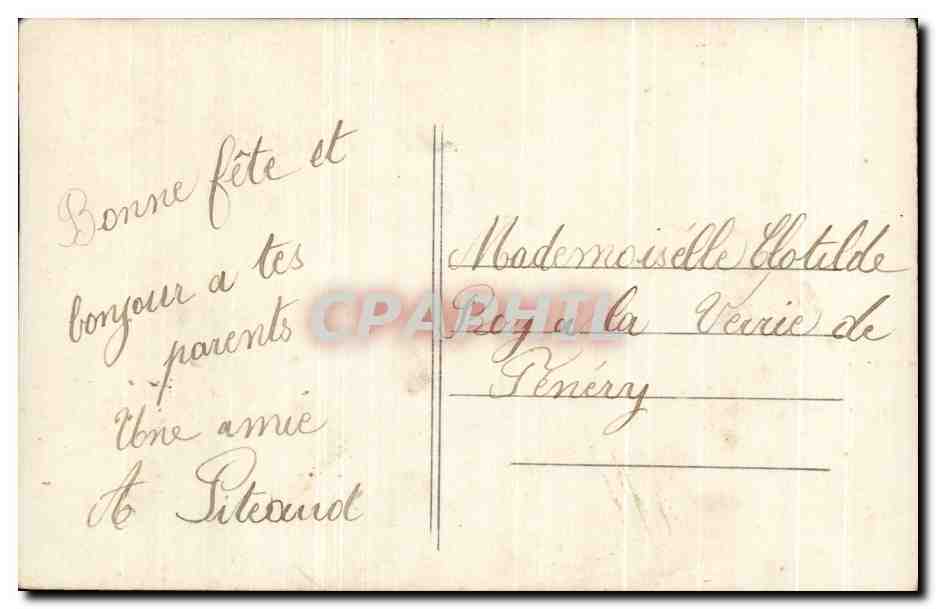 Bonne fête et
bonjour a tes
parents
Une amie
A Piteaud
Mademoisélle Clotilde
Roy a la Verrie de
Ténéry
CPAPHIL